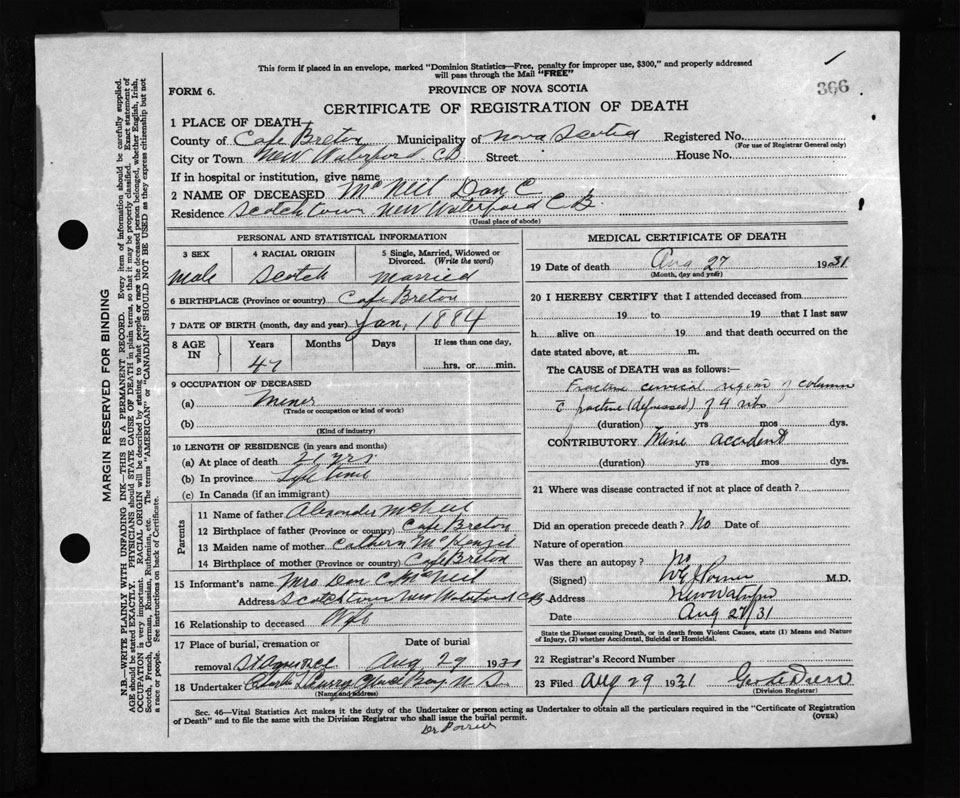 This form if placed in an envelope, marked "Dominion Statistics—Free, penalty for improper use, $300," and properly addressed
will pass through the Mail "FREE"
366
FORM 6.
PROVINCE OF NOVA SCOTIA
CERTIFICATE OF REGISTRATION OF DEATH
1 PLACE OF DEATH—
County of Cape Breton Municipality of Nova Scotia Registered No.
(For use of Registrar General only)
City or Town New Waterford CB Street House No.
If in hospital or institution, give name
2 NAME OF DECEASED McNeil Dan C
Residence Scotchtown New Waterford C.B.
(Usual place of abode)
PERSONAL AND STATISTICAL INFORMATION
3 SEX 4 RACIAL ORIGIN 5 Single, Married, Widowed or
Divorced. (Write the word)
male Scotch Married
6 BIRTHPLACE (Province or country) Cape Breton
7 DATE OF BIRTH (month, day and year) Jan, 1884
8 AGE IN Years Months Days If less than one day,
47 hrs. or min.
9 OCCUPATION OF DECEASED
(a) miner
(Trade or occupation or kind of work)
(b)
(Kind of industry)
10 LENGTH OF RESIDENCE (in years and months)
(a) At place of death yrs
(b) In province Life time
(c) In Canada (if an immigrant)
Parents
11 Name of father Alexander McNeil
12 Birthplace of father (Province or country) Cape Breton
13 Maiden name of mother Cathern McKenzie
14 Birthplace of mother (Province or country) Cape Breton
15 Informant's name Mrs Dan C McNeil
Address Scotchtown New Waterford CB
16 Relationship to deceased Wife
17 Place of burial, cremation or Date of burial
removal St Agnes Aug 29 1931
18 Undertaker Curry Glace Bay N.S.
(Name and address)
MEDICAL CERTIFICATE OF DEATH
19 Date of death Aug 27 1931
(Month, day and year)
20 I HEREBY CERTIFY that I attended deceased from
19 to 19 that I last saw
h alive on 19 and that death occurred on the
date stated above, at m.
The CAUSE of DEATH was as follows:—
Fracture cervical region of column
c̄ fracture (depressed) of 4 ribs
(duration) yrs mos dys.
CONTRIBUTORY Mine accident
(duration) yrs mos dys.
21 Where was disease contracted if not at place of death?
Did an operation precede death? No Date of
Nature of operation
Was there an autopsy? No
(Signed) M.D.
Address New Waterford
Date Aug 27/31
State the Disease causing Death, or in death from Violent Causes, state (1) Means and Nature
of Injury, (2) whether Accidental, Suicidal or Homicidal.
22 Registrar's Record Number
23 Filed Aug 29 1931
(Division Registrar)
Sec. 46—Vital Statistics Act makes it the duty of the Undertaker or person acting as Undertaker to obtain all the particulars required in the "Certificate of Registration
of Death" and to file the same with the Division Registrar who shall issue the burial permit. (OVER)
MARGIN RESERVED FOR BINDING
N.B.—WRITE PLAINLY WITH UNFADING INK—THIS IS A PERMANENT RECORD. Every item of information should be carefully supplied.
AGE should be stated EXACTLY. PHYSICIANS should STATE CAUSE OF DEATH in plain terms, so that it may be properly classified. Exact statement of
OCCUPATION is very important. RACIAL ORIGIN will be described by stating to what people or race the deceased person belonged, whether English, Irish,
Scotch, French, German, Russian, Ruthenian, etc. The terms "AMERICAN" or "CANADIAN" SHOULD NOT BE USED as they express citizenship but not
a race or people. See instructions on back of Certificate.